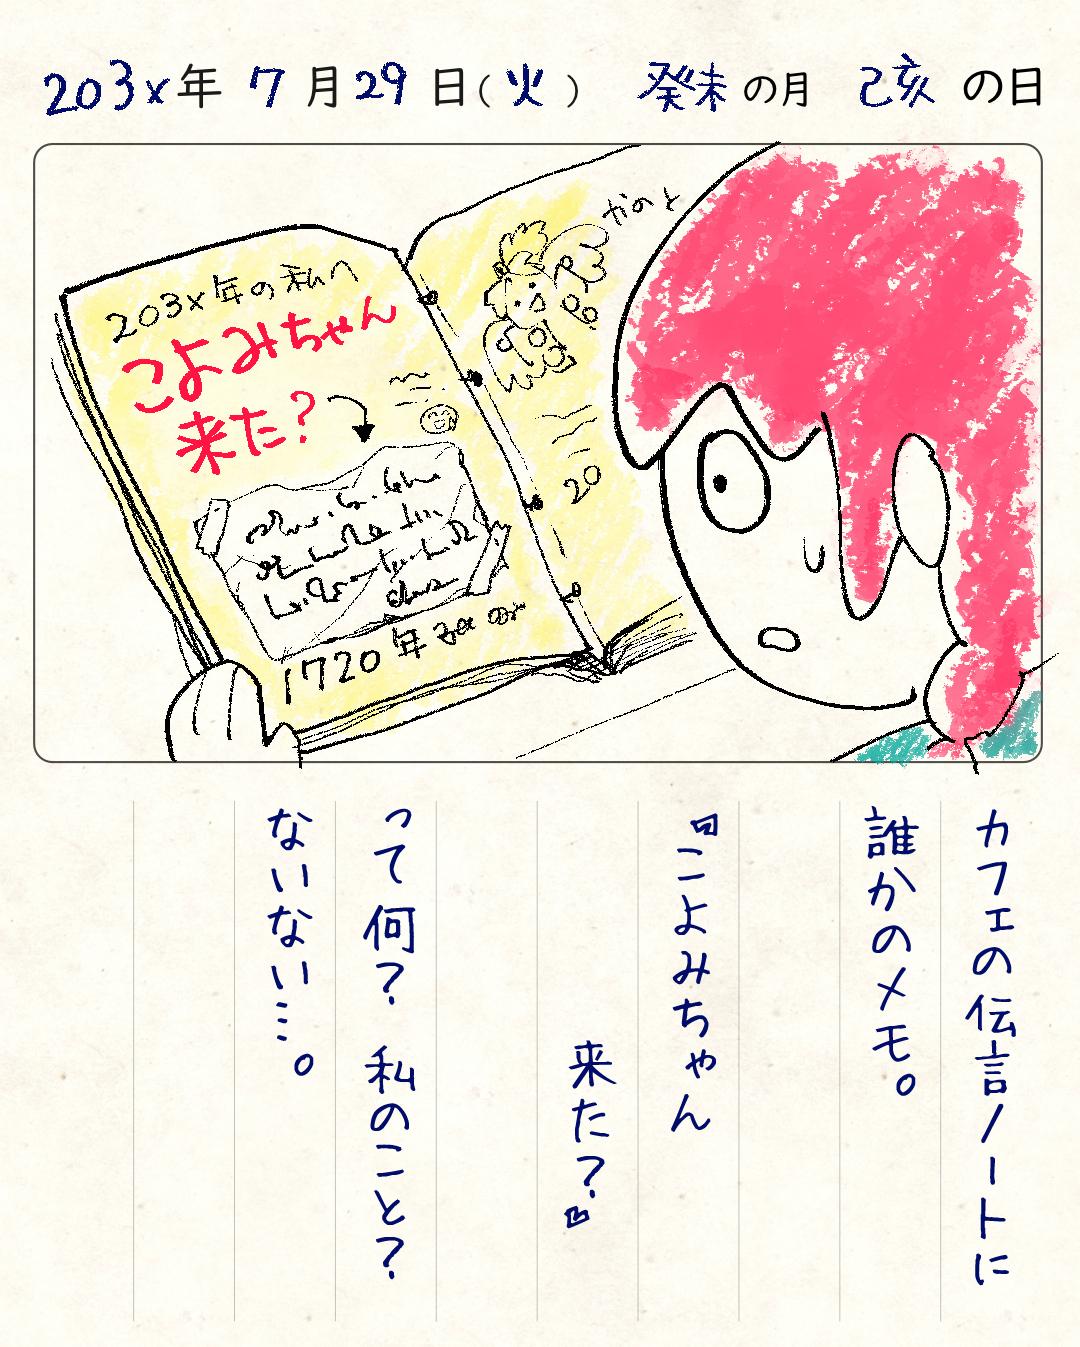 203x年 7月29日(火) 癸未の月 己亥の日
203x年の私へ
こよみちゃん
来た?
1720年
かのと
20
カフェの伝言ノートに
誰かのメモ。
『こよみちゃん
来た?』
って何? 私のこと?
ないない…。